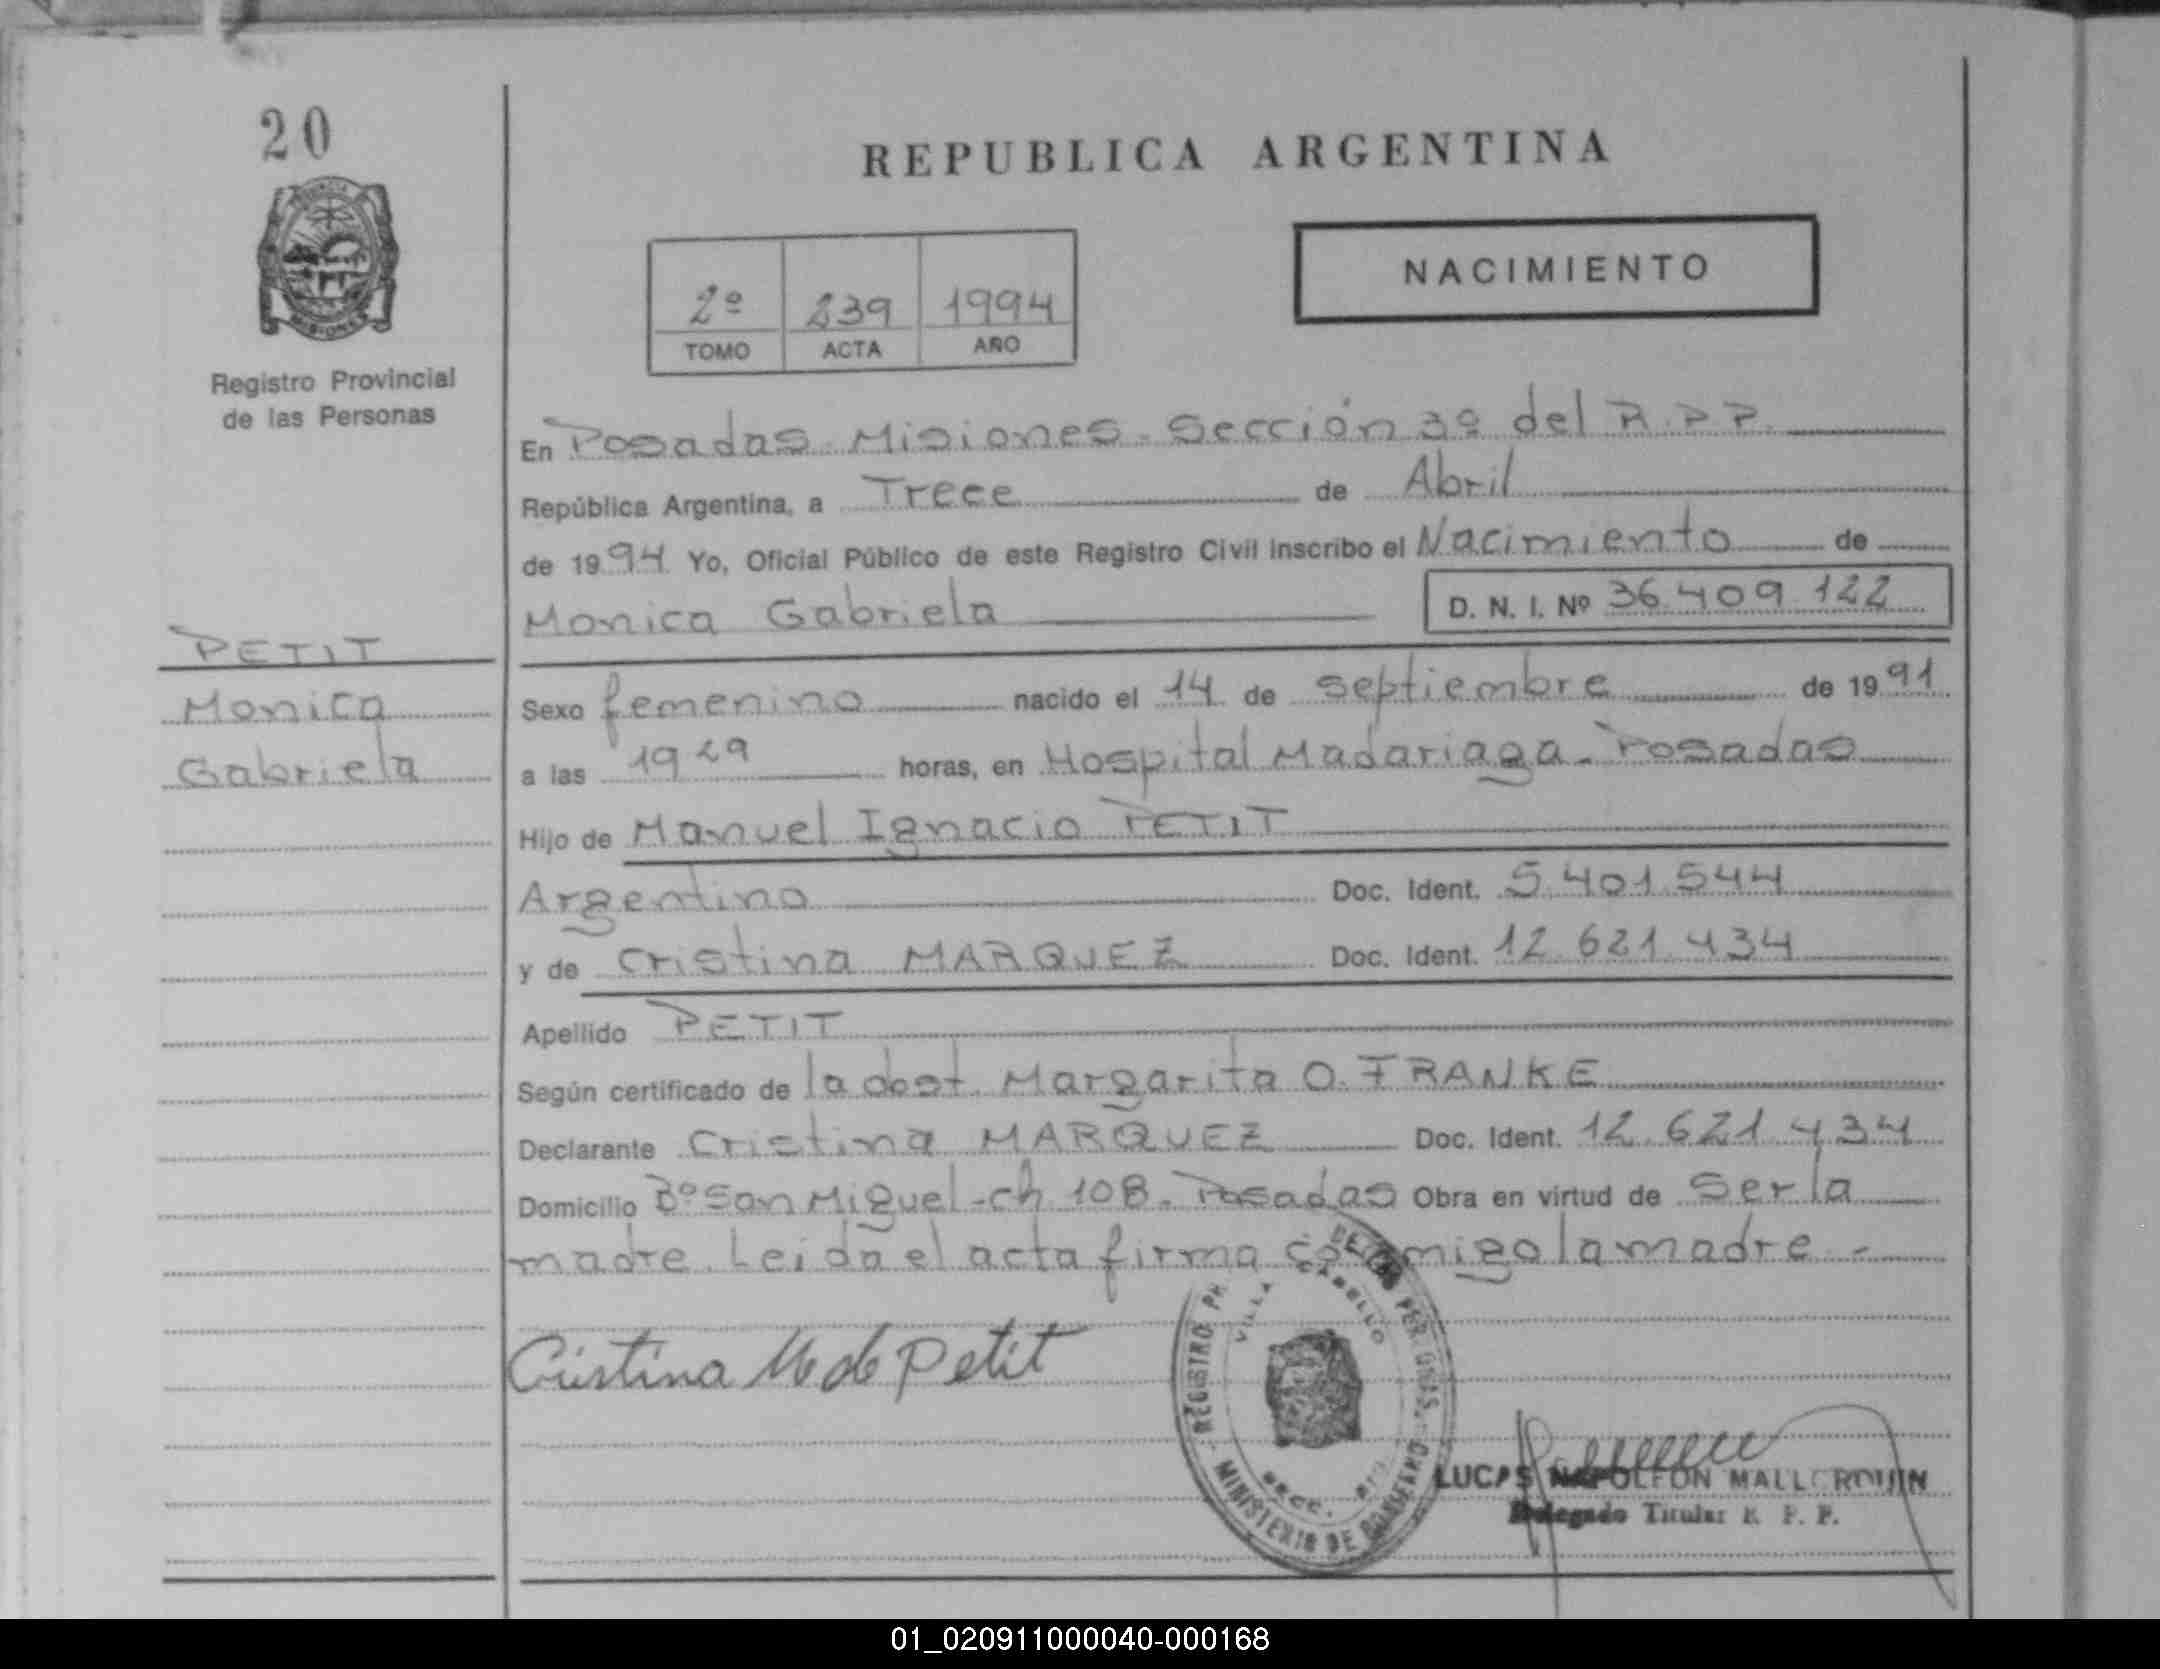 20
REPUBLICA ARGENTINA
NACIMIENTO
2º 239 1994
TOMO ACTA AÑO
MISIONES
Registro Provincial
de las Personas
En Posadas Misiones - Sección 3º del R.P.P.
República Argentina, a Trece de Abril
de 1994 Yo, Oficial Público de este Registro Civil inscribo el Nacimiento de
Monica Gabriela D. N. I. Nº 36.409.122
PETIT
Monica
Gabriela
Sexo femenino nacido el 14 de septiembre de 1991
a las 19 29 horas, en Hospital Madariaga - Posadas
Hijo de Manuel Ignacio PETIT
Argentino Doc. Ident. 5.401.544
y de Cristina MARQUEZ Doc. Ident. 12.621.434
Apellido PETIT
Según certificado de la obst. Margarita O. FRANKE
Declarante Cristina MARQUEZ Doc. Ident. 12.621.434
Domicilio Bº San Miguel - ch 108 - Posadas Obra en virtud de Ser la
madre. Leida el acta firma conmigo la madre -
Cristina M de Petit
REGISTRO DE LAS PERSONAS
VILLA CABELLO
SECC.
MINISTERIO DE GOBIERNO
LUCAS NAPOLEON MALLORQUIN
Delegado Titular R. P. P.
01_020911000040-000168